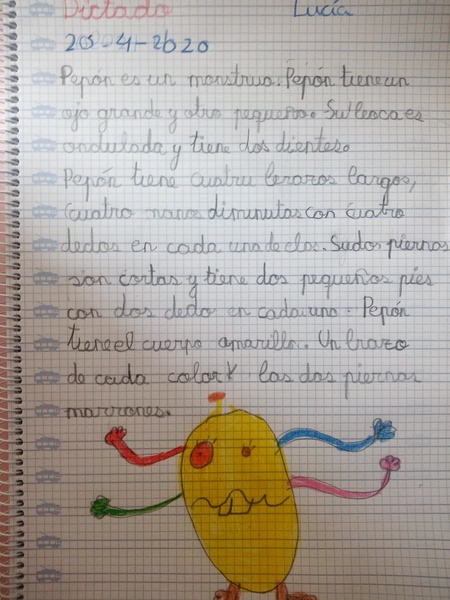 Dictado Lucía
20-4-2020
Pepón es un monstruo. Pepón tiene un
ojo grande y otro pequeño. Su boca es
ondulada y tiene dos dientes.
Pepón tiene cuatru brazos largos,
cuatro manos diminutas con cuatro
dedos en cada una de elas. Su dos piernas
son cortas y tiene dos pequeños pies
con dos dedo en cada uno. Pepón
tiene el cuerpo amarillo. Un brazo
de cada color y las dos piernas
marrones.